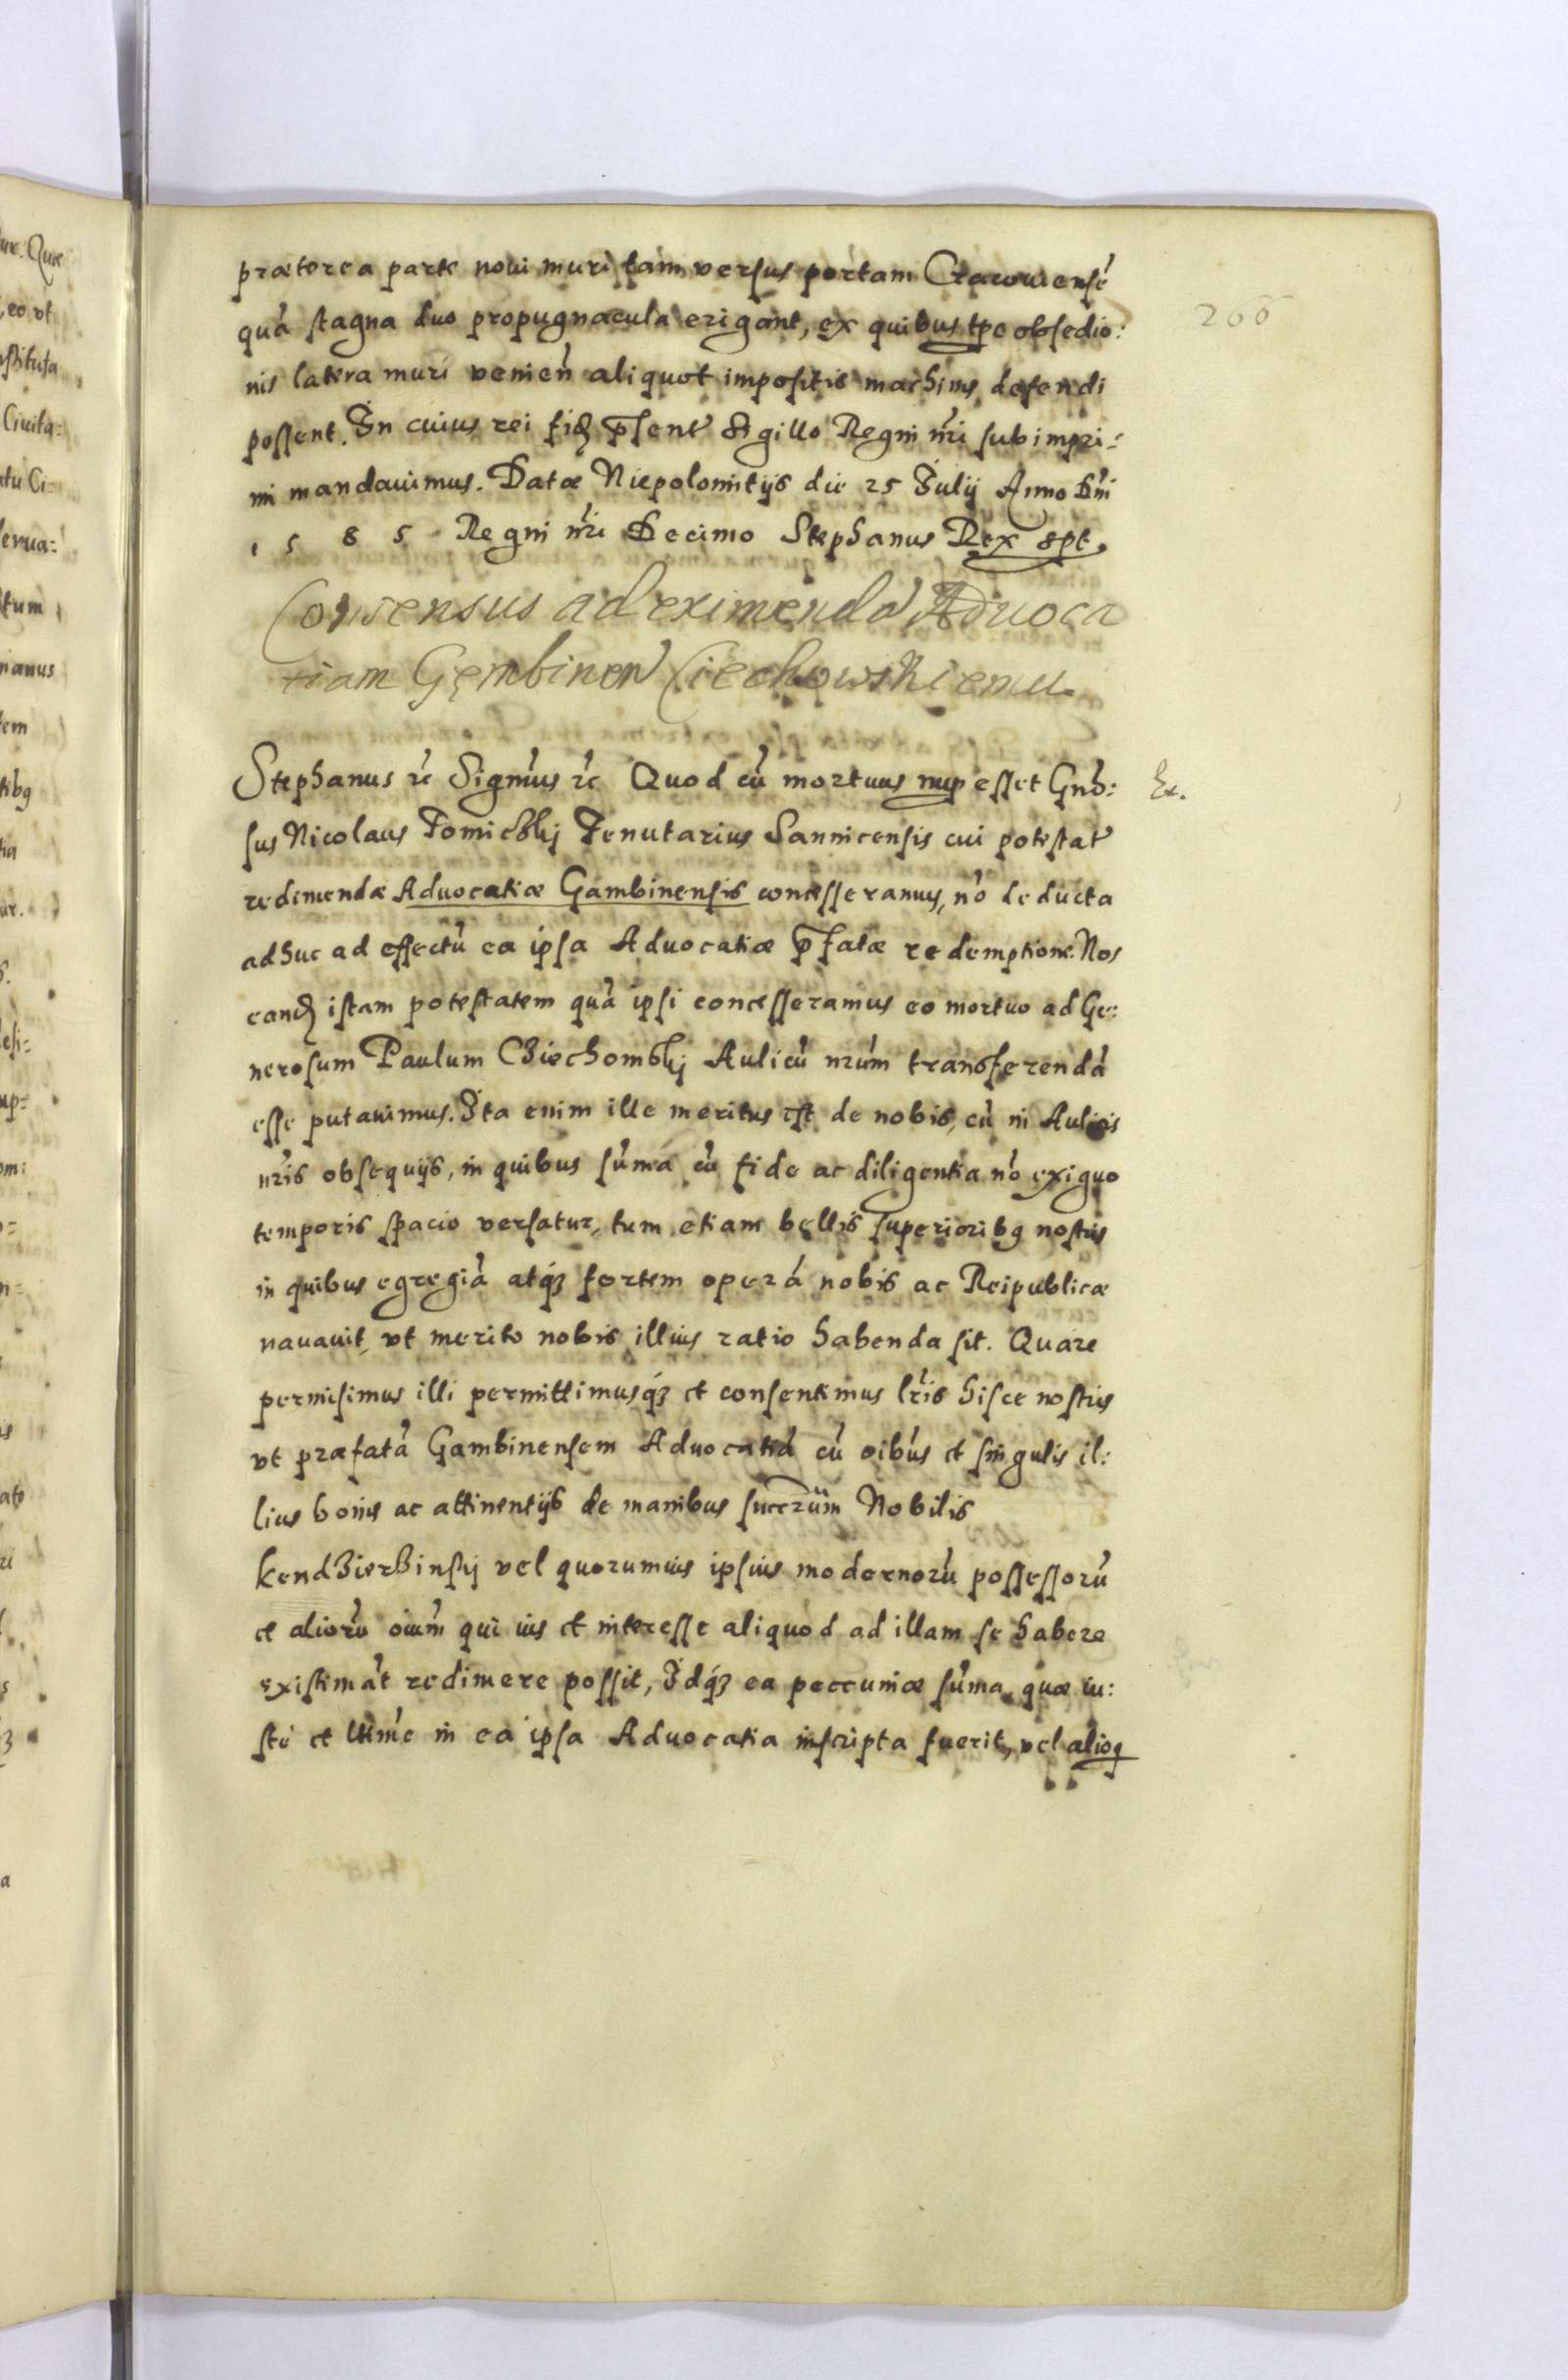 præterea parte noui muri tam versus portam Cracouiensē
quā stagna duo propugnacula erigant, ex quibus tpe obsedio:
nis latera muri venien̄ aliquot impositis machinis defendi
possent. In cuius rei fidē p̄sent Sigillo Regni nr̄i subimpri:
mi mandauimus. Datæ Niepolomitijs die 25 Julij Anno Dn̄i
1585 Regni nr̄i Decimo Stephanus Rex sp̄t.
266
Consensus ad eximendā Aduoca
tiam Gęmbinen Ciechowskiemu
Stephanus rc̄ Signm̄us rc̄ Quod cū mortuus nup esset Gn̄o:
sus Nicolaus Tomickhj Tenutarius Sannicensis cui potestat
redimendæ Aduocatiæ Gambinensis concesseramus, nō deducta
adhuc ad effectū ea ipsa Aduocatiæ p̄fatæ redemptione. Nos
eandē istam potestatem quā ipsi concesseramus eo mortuo ad Ge:
nerosum Paulum Ciechomskj Aulicū nrūm transferendā
esse putauimus. Ita enim ille meritus est de nobis, cū in Aulicis
nr̄is obsequijs, in quibus sūma cū fide ac diligentia nō exiguo
temporis spacio versatur, tum etiam bellis superioribq nostris
in quibus egregiā atq́ꝫ fortem operā nobis ac Reipublicæ
nauauit, vt merito nobis illius ratio habenda sit. Quare
permisimus illi permittimusq́ꝫ et consentimus lr̄is hisce nostris
vt præfatā Gambinensem Aduocatiā cū oib̄us et singulis il:
lius bonis ac attinentijs de manibus succr̄um Nobilis
KendZierZinsij vel quorumuis ipsius modernorū possessorū
et aliorū oiūm qui ius et interesse aliquod ad illam se habere
existimāt redimere possit, Idq́ꝫ ea peccuniæ sūma, quæ iu:
stè et ltimè in ea ipsa Aduocatia inscripta fuerit, vel alioq